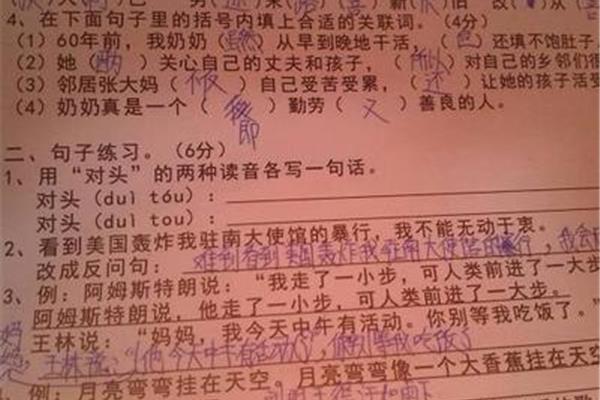 4、在下面句子里的括号内填上合适的关联词。（4分）
（1）60年前，我奶奶（虽然）从早到晚地干活，（但）还填不饱肚子
（2）她（ ）关心自己的丈夫和孩子，（所以）对自己的乡邻们很
（3）邻居张大妈（ ）自己受苦受累，（还）让她的孩子活受
（4）奶奶真是一个（ ）勤劳（又）善良的人。
二、句子练习。（6分）
1、用“对头”的两种读音各写一句话。
对头（duì tóu）：
对头（duì tou）：
2、看到美国轰炸我驻南大使馆的暴行，我不能无动于衷。
改成反问句： 难到看到美国轰炸我驻南大使馆的暴行，我会
3、例：阿姆斯特朗说：“我走了一小步，可人类前进了一大步
阿姆斯特朗说，他走了一小步，可人类前进了一大步。
王林说：“妈妈，我今天中午有活动。你别等我吃饭了。”
王林说：今天中午有活动，你别等我吃饭了
例：月亮弯弯挂在天空。 月亮弯弯像一个大香蕉挂在天空